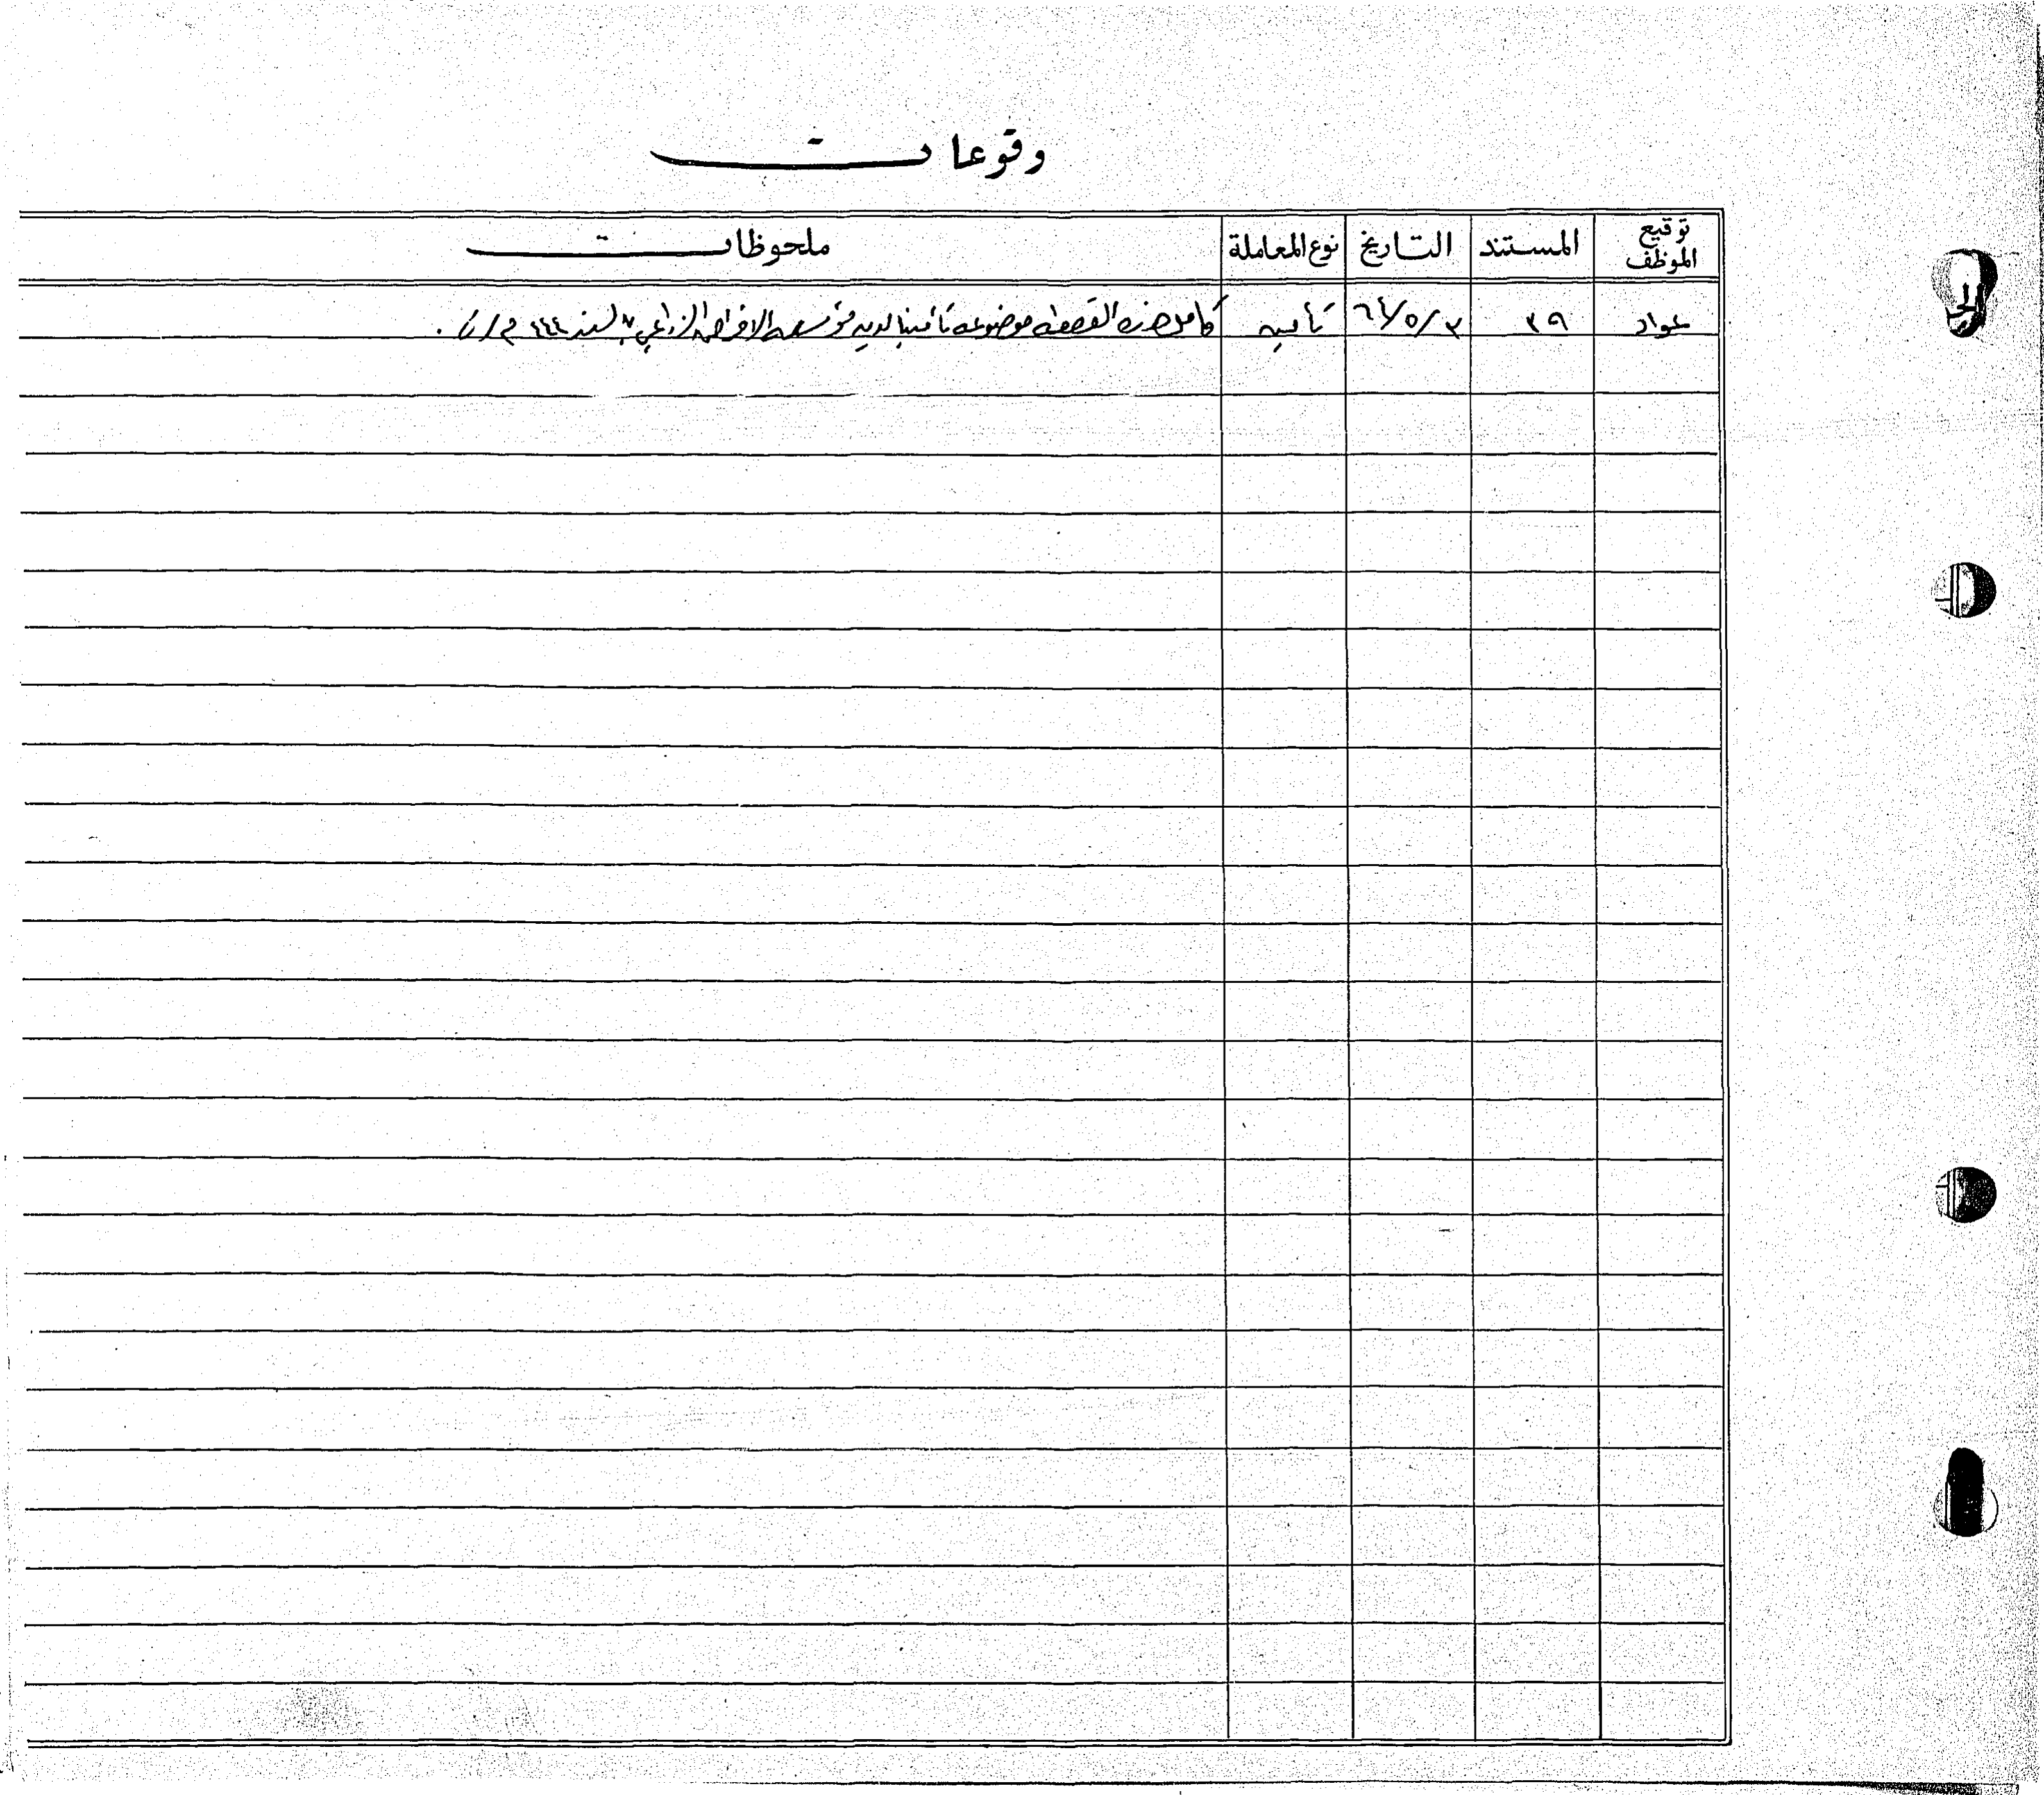 وقوعات
توقيع الموظف المستند التاريخ نوع المعاملة ملحوظات
عواد ٣٩ ٣/٥/٦٤ تأمين كامل هذه القطعة موضوعة تأمينا لدين مؤسسة الاقراض الزراعي بالسند ٤٤٤